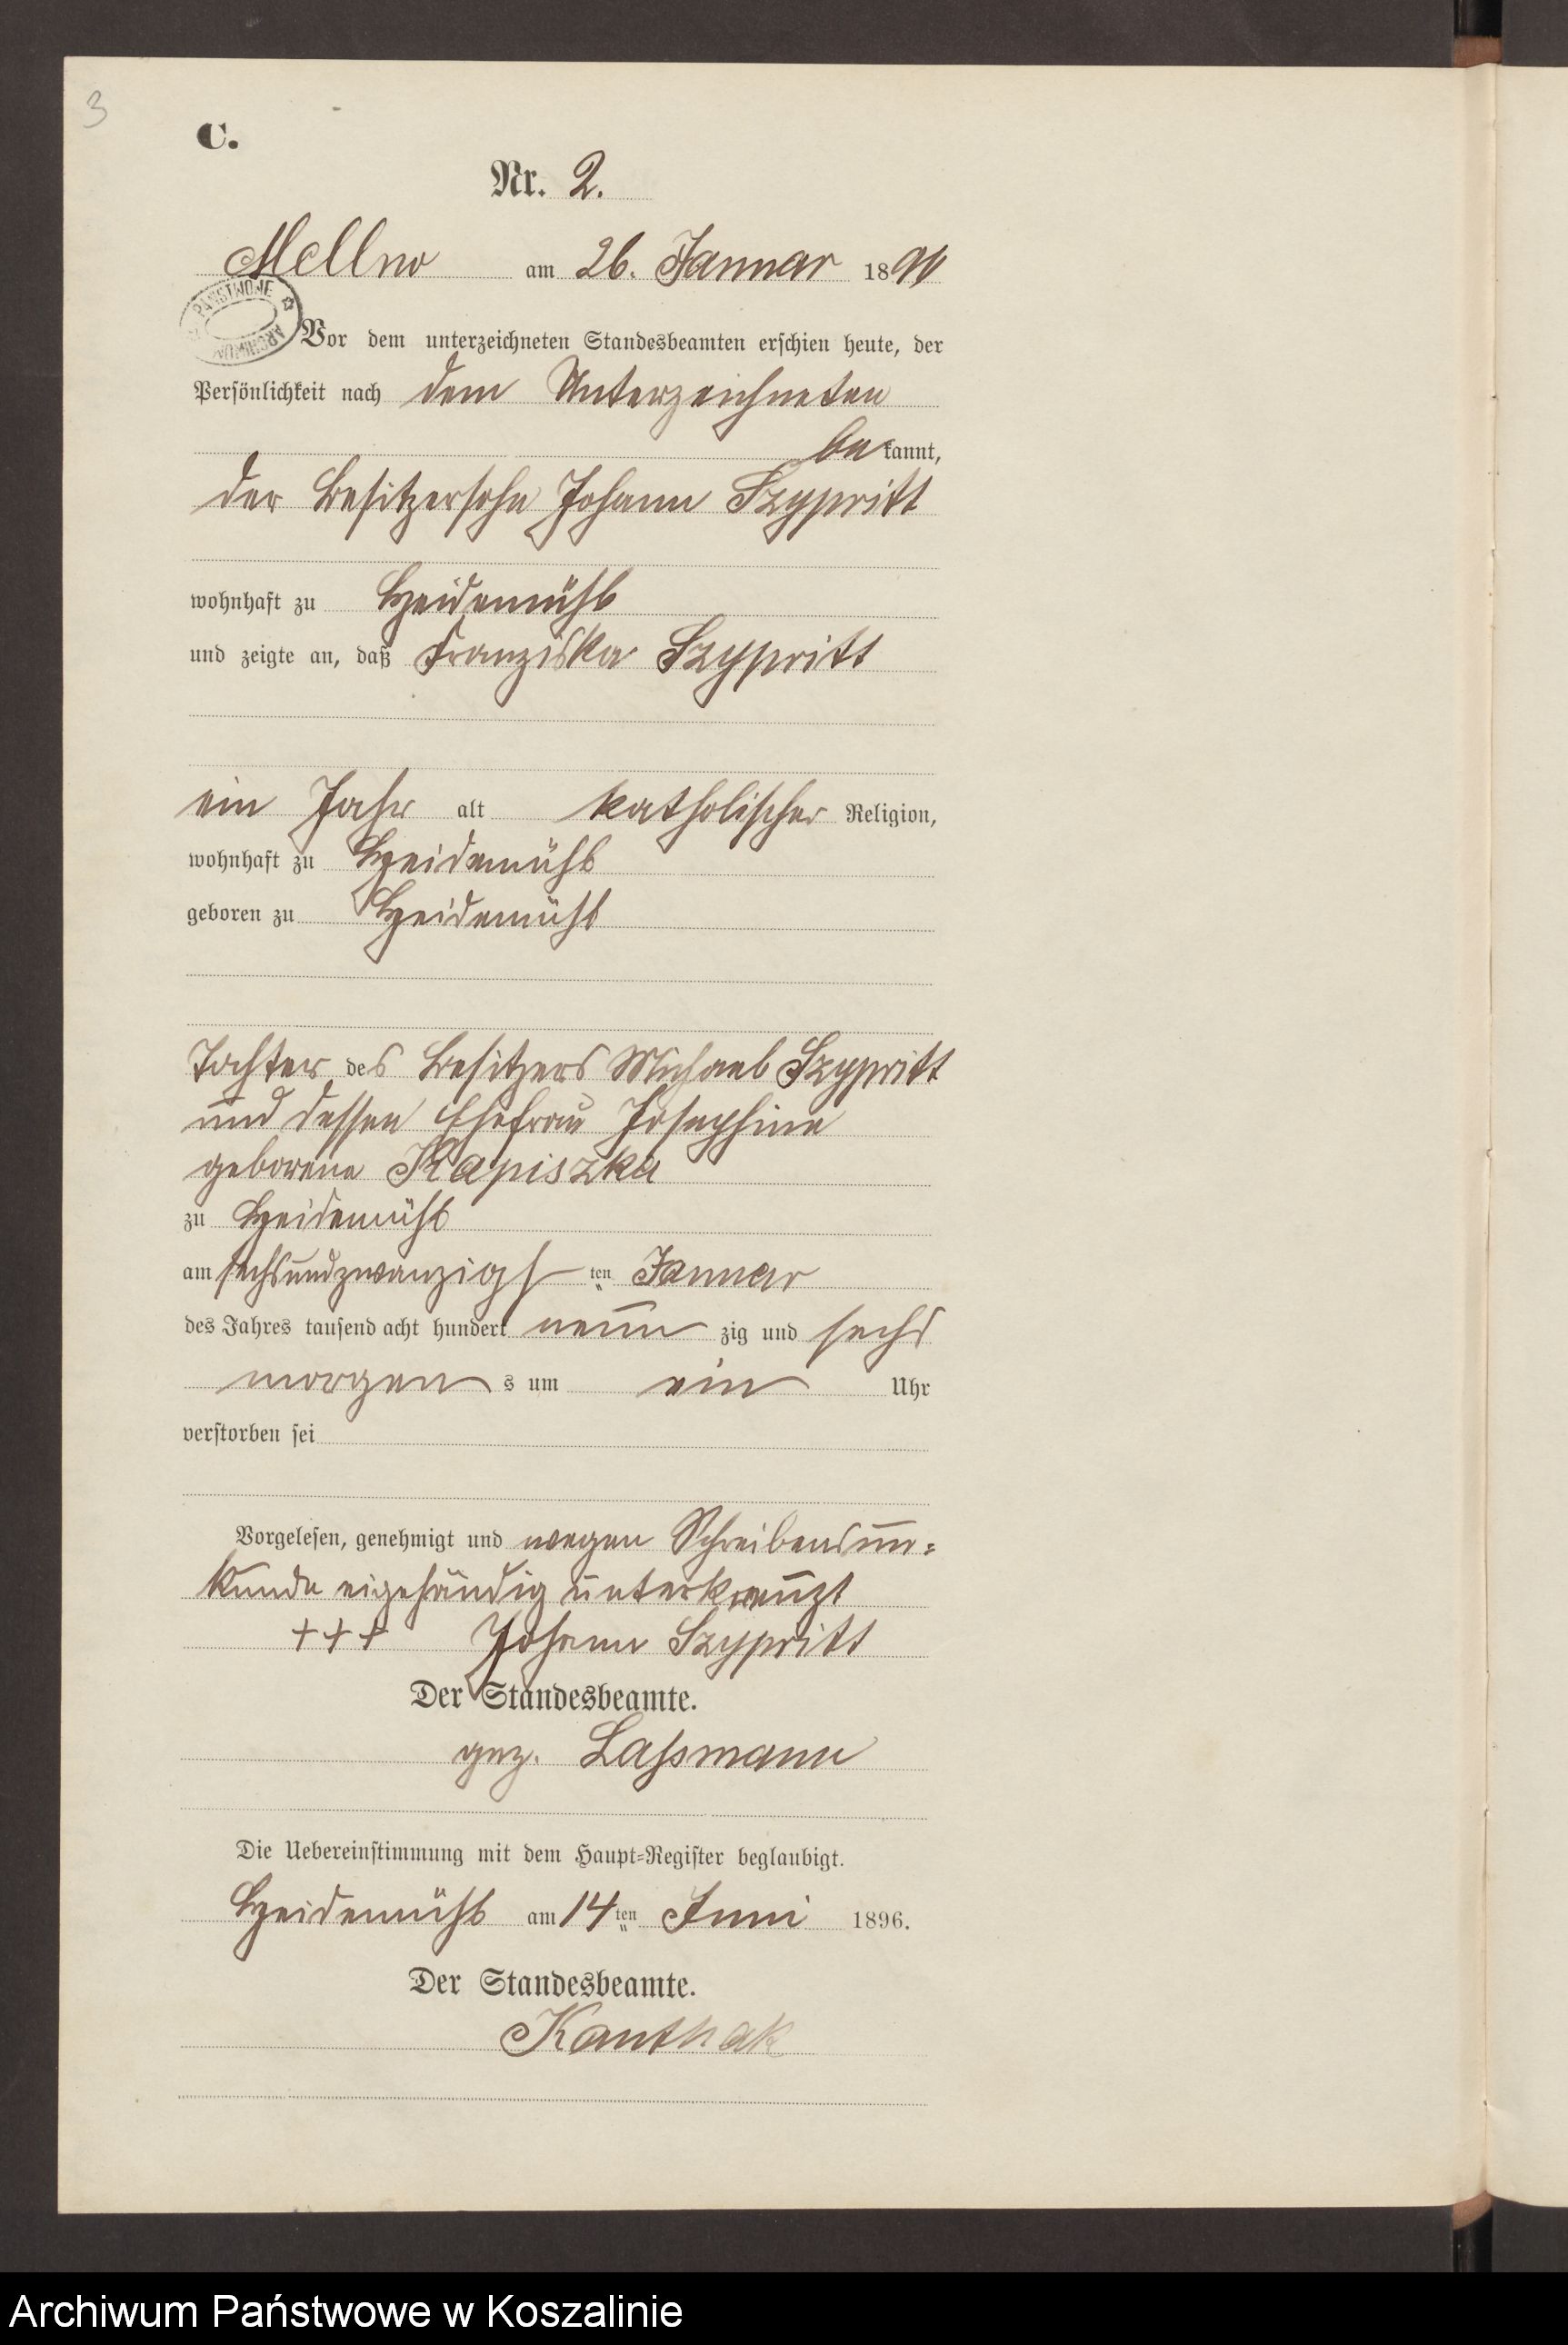 3
C.
Nr. 2.
Mellno am 26. Januar 1896
PAŃSTWOWE ARCHIWUM
Vor dem unterzeichneten Standesbeamten erschien heute, der
Persönlichkeit nach dem Unterzeichneten
be kannt,
der Besitzersohn Johann Szypritt
wohnhaft zu Heidemühl
und zeigte an, daß Franziska Szypritt
ein Jahr alt katholischer Religion,
wohnhaft zu Heidemühl
geboren zu Heidemühl
Tochter des Besitzers Michael Szypritt
und dessen Ehefrau Josephine
geborene Kapiszka
zu Heidemühl
am sechsundzwanzigsten Januar
des Jahres tausend acht hundert neun zig und sechs
morgen s um ein Uhr
verstorben sei
Vorgelesen, genehmigt und wegen Schreibensun=
kunde eigehändig unterkreuzt
+++ Johann Szypritt
Der Standesbeamte.
gez. Laßmann
Die Uebereinstimmung mit dem Haupt=Register beglaubigt.
Heidemühl am 14ten Juni 1896.
Der Standesbeamte.
Kanthak
Archiwum Państwowe w Koszalinie